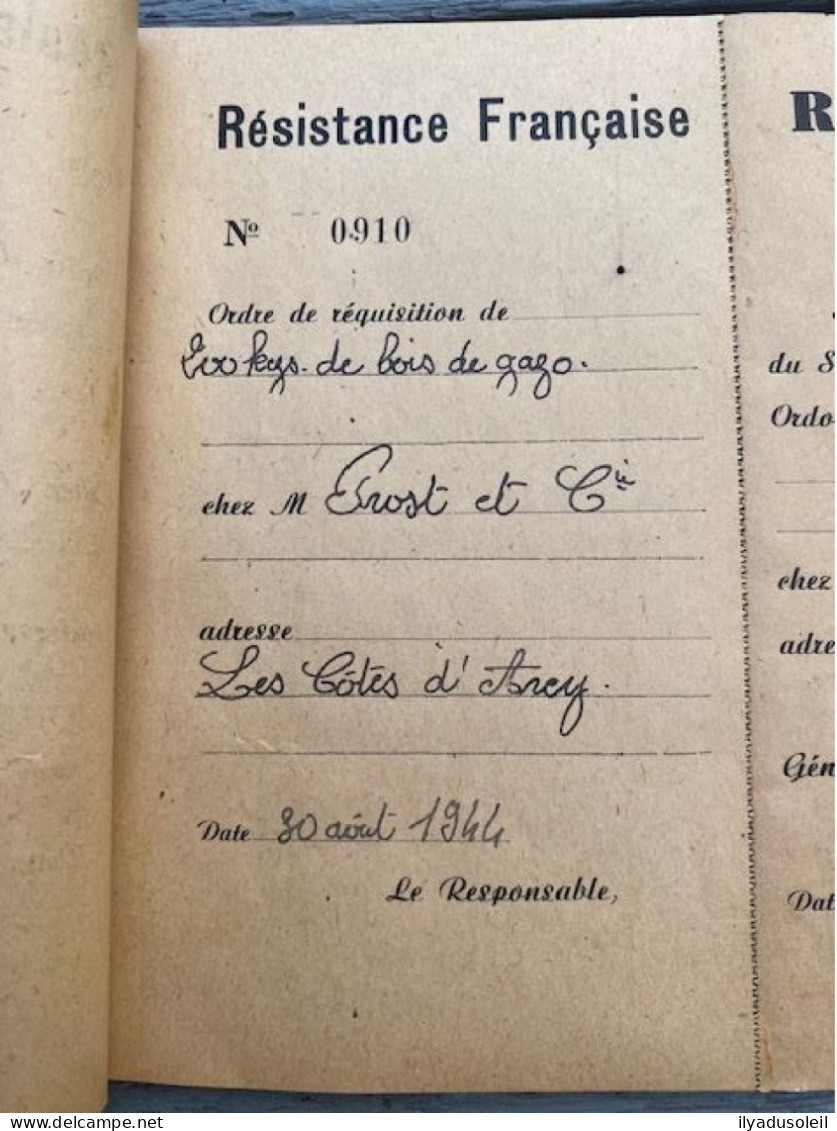 Résistance Française
Nº 0.910
Ordre de réquisition de
200 kgs. de bois de gazo.
chez M Prost et Cie
adresse
Les Côtes d'Arey.
Date 30 août 1944
Le Responsable,
R
du S
Ordo
chez
adre
Gén
Dat
delcampe.net
ilyadusoleil